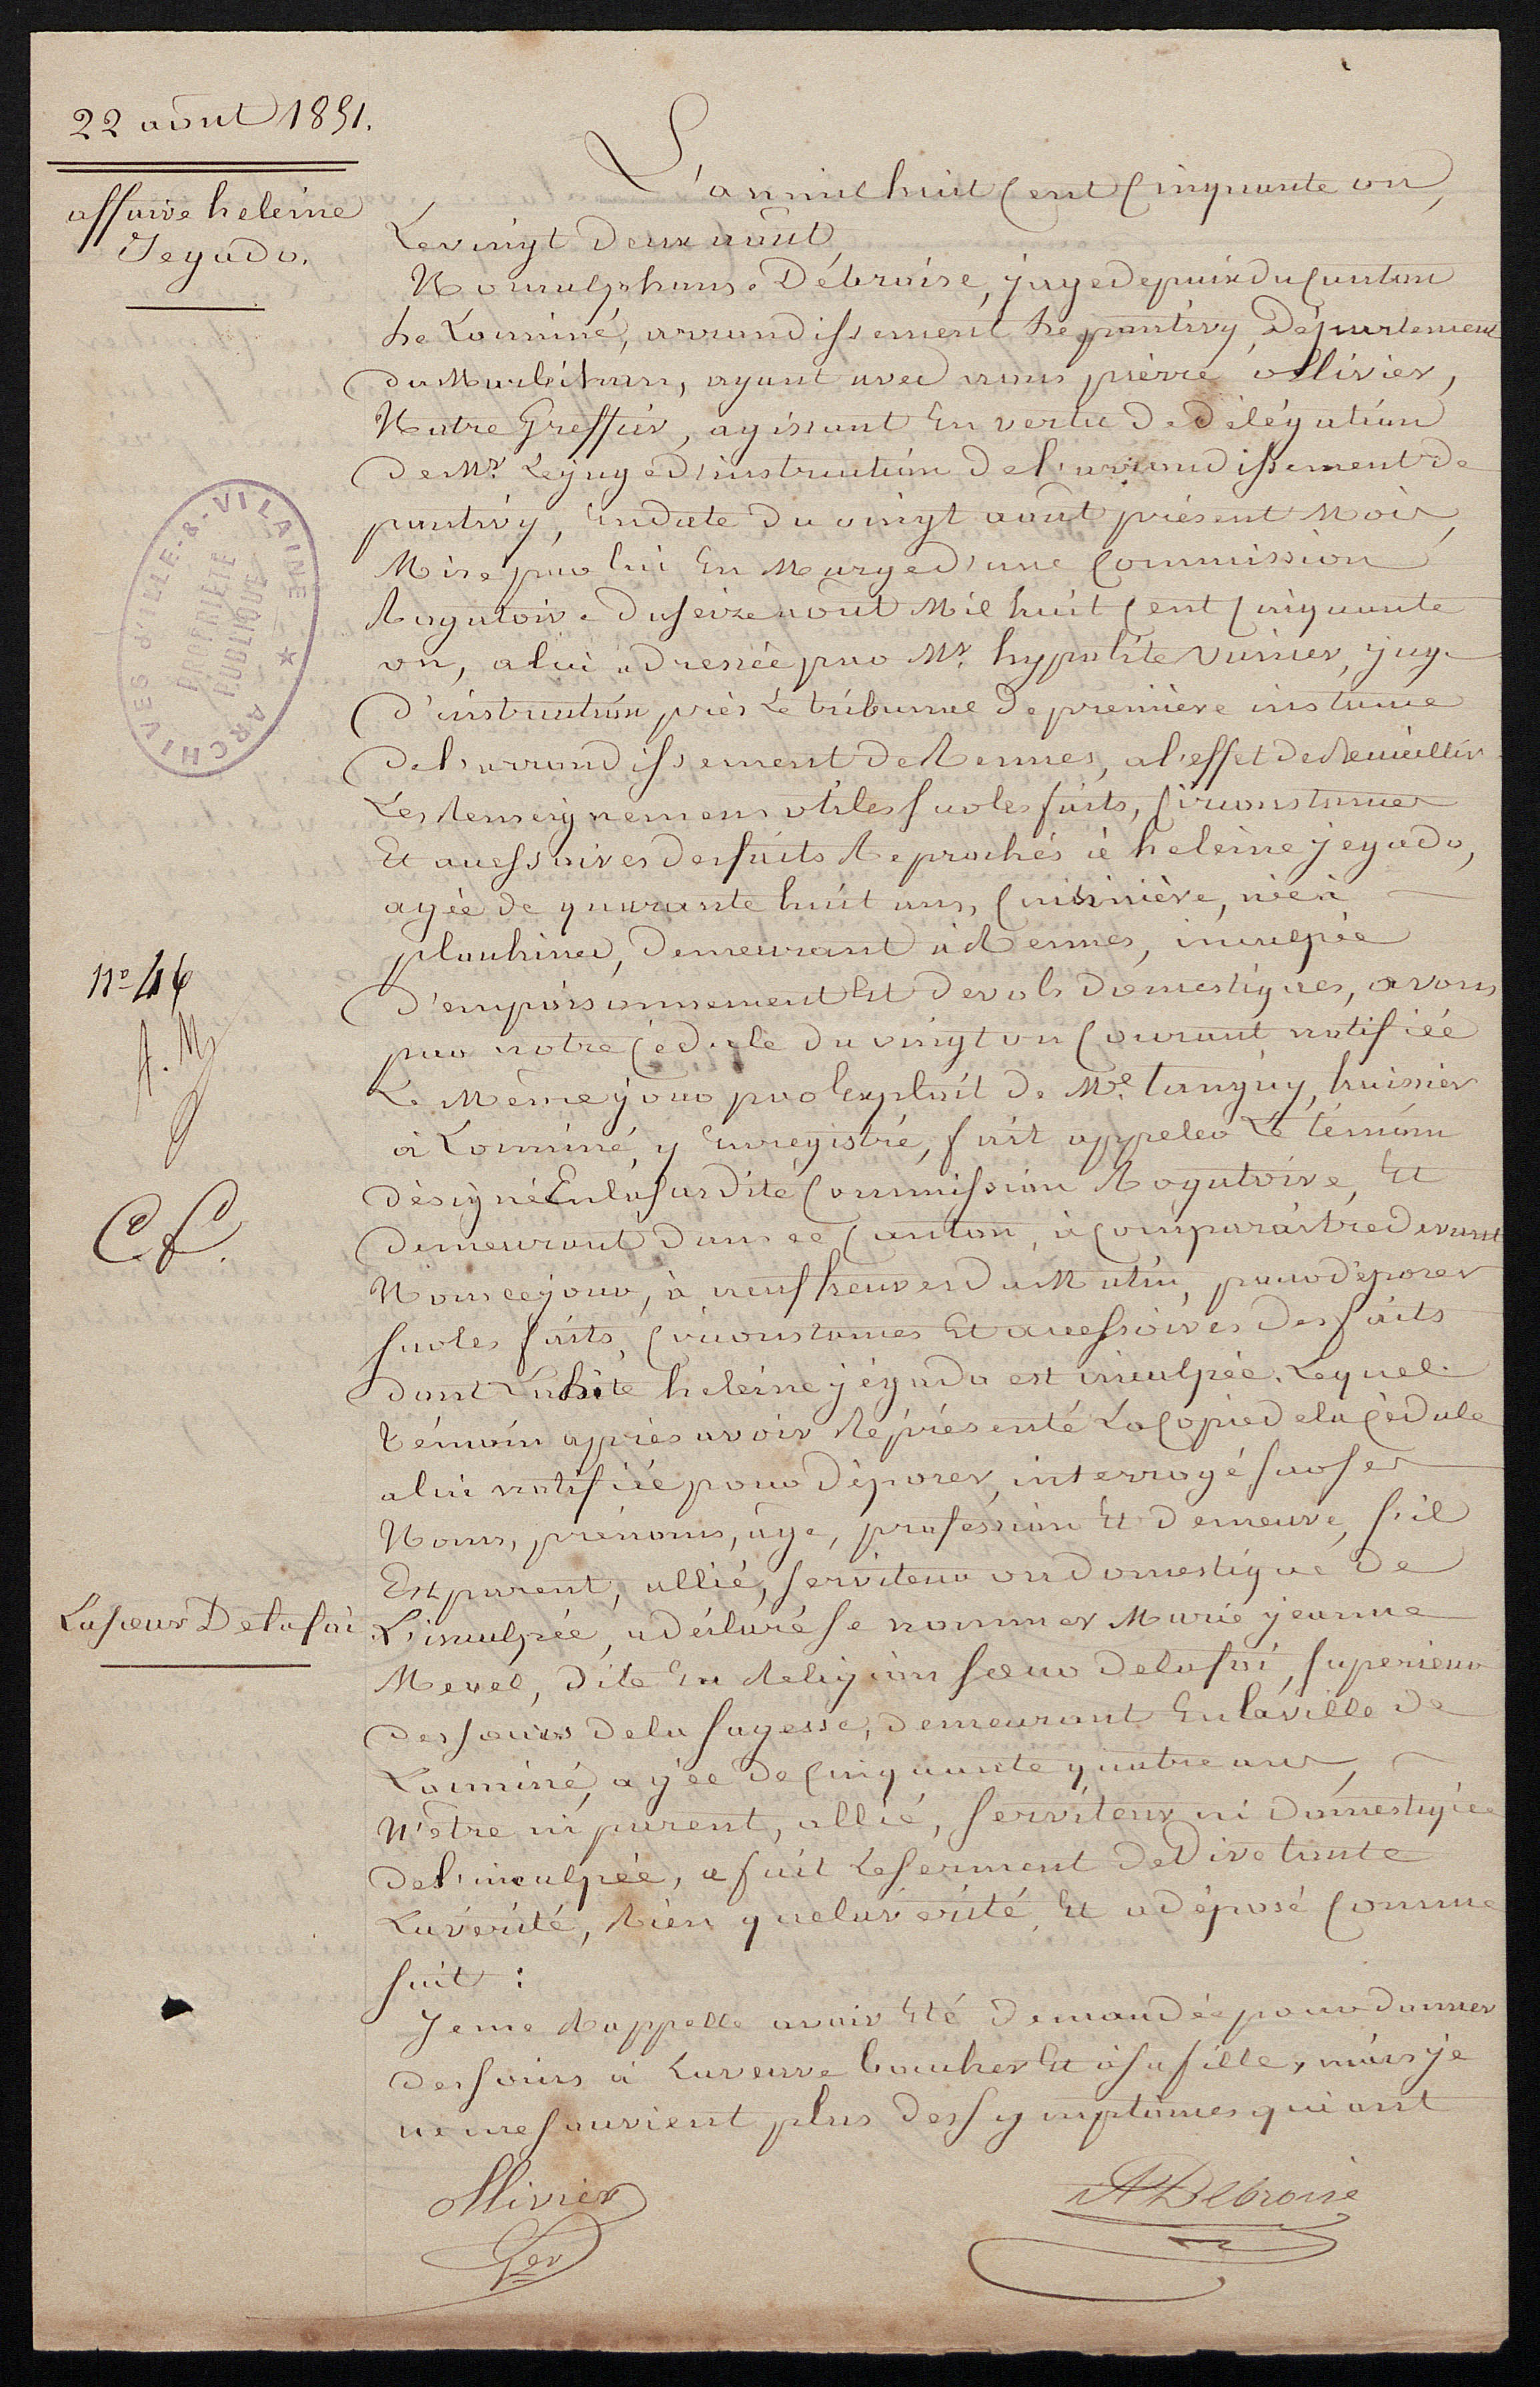 22 août 1851.
affaire heleine
Jegado.
L'an mil huit Cent Cinquante un,
Le vingt deux août
Nous alphonse Débroise, juge de paix du Canton
de Locminé, arrondissement de pontivy, Département
du Morbihan, ayant avec nous pièrre ollivier,
Notre Greffier, agissant En vertu de délégation
de Mr. Le juge d'instruction de l'arrondissement de
pontivy, En date du vingt août présent Mois,
Mise par lui En Marge d'une Commission
Rogatoire du seize août Mil huit Cent Cinquante
un, a lui adressée par Mr. hypolite vannier, juge
d'instruction près Le tribunal de première instance
de l'arrondissement de Rennes, a l'effet de Recueillir
Les Renseignemens utiles sur les faits, Circonstances
Et accessoires des faits Reprochés à heleine jegado,
agée de quarante huit ans, Cuisinière, née à
plouhinec, demeurant à Rennes, inculpée
d'empoisonnement Et de vols domestiques, avons
par notre Cédule du vingt un Courant notifiée
Le Même jour par Exploit de Me. tanguy, huissier
à Locminé, y Enregistré, fait appeler Le témoin
désigné En la susdite Commission Rogatoire, Et
demeurant dans ce Canton, à Comparaître devant
Nous ce jour, à neuf heures du Matin, pour déposer
sur les faits, Circonstances Et accessoires des faits
dont La dite heleine jégado est inculpée. Lequel
témoin après avoir Représenté La Copie de la Cédule
a lui notifiée pour déposer, interrogé sur ses
Noms, prénoms, âge, profession Et demeure, s'il
Est parent, allié, serviteur ou domestique de
La sœur De la foi
L'inculpée, a déclaré se nommer Marie jeanne
Mevel, dite En Religion sœur de la foi, superieur
des sœurs de la sagesse, demeurant En la ville de
Locminé, agée de Cinquante quatre ans,
N'être ni parent, allié, serviteur ni domestiquée
de l'inculpée, a fait Le serment de Dire toute
La vérité, Rien que la vérité, Et a déposé Comme
suit :
Je me Rappelle avoir Eté demandée pour donner
des soins à La veuve boucher Et à sa fille, mais je
ne me souvient plus des symptômes qui ont
Ollivier
Ger
ADebroise
No 46
C. L.
ARCHIVES d'ILLE-&-VILAINE
PROPRIÉTÉ
PUBLIQUE